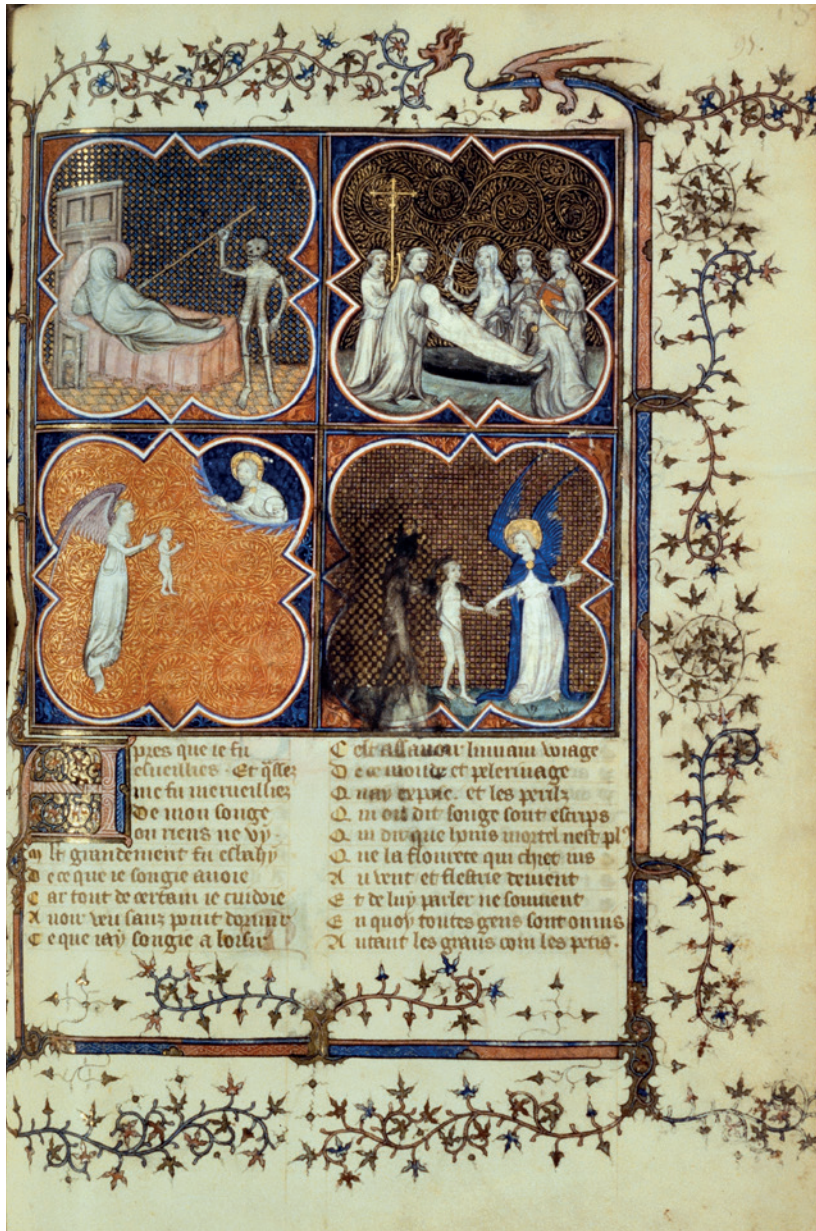 95.
Apres que ie fu
esueillies. Et q̃ssez
me fu merueilliez
De mon songe
ou riens ne vy.
Mlt grandement fu esbahy
De ce que ie songie auoie
Car tout de certain ie cuidoie
Auoir veu sanz point dormir
Ce que iay songie a loisir
Cest assauoir humain voiage
De ce monde et pelerinage
Quay expose. et les perilz
Qui ou dit songe sont escrips
Qui dit que homs mortel nest pl9
Que la flourete qui chiet ius
Au vent et flestrie deuient
Et de luy parler ne souuient
En quoy toutes gens sont onnis
Autant les grans com les petis.